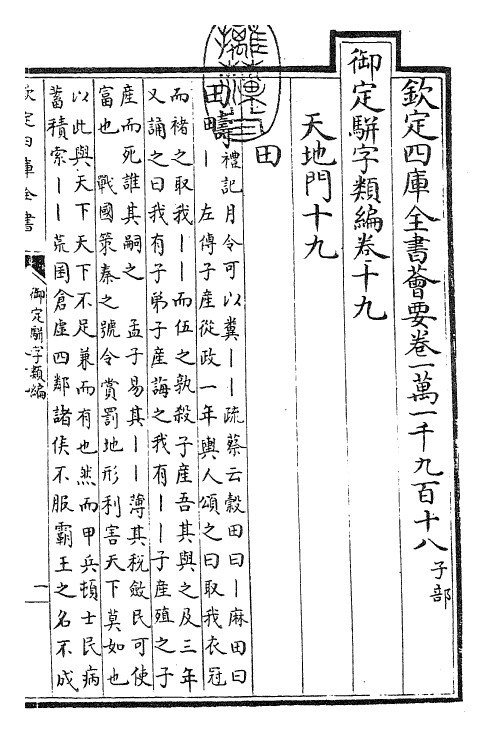 欽定四庫全書薈要卷一萬一千九百十八子部
御定駢字類編卷十九
天地門十九
田
田疇
禮記月令可以糞丨丨疏蔡云穀田曰丨麻田曰
丨 左傳子產從政一年輿人頌之曰取我衣冠
而褚之取我丨丨而伍之孰殺子產吾其與之及三年
又誦之曰我有子弟子產誨之我有丨丨子產殖之子
產而死誰其嗣之 孟子易其丨丨薄其稅斂民可使
富也 戰國策秦之號令賞罰地形利害天下莫如也
以此與天下天下不足兼而有也然而甲兵頓士民病
蓄積索丨丨荒囷倉虛四鄰諸侯不服霸王之名不成
欽定四庫全書
御定駢字類編
一